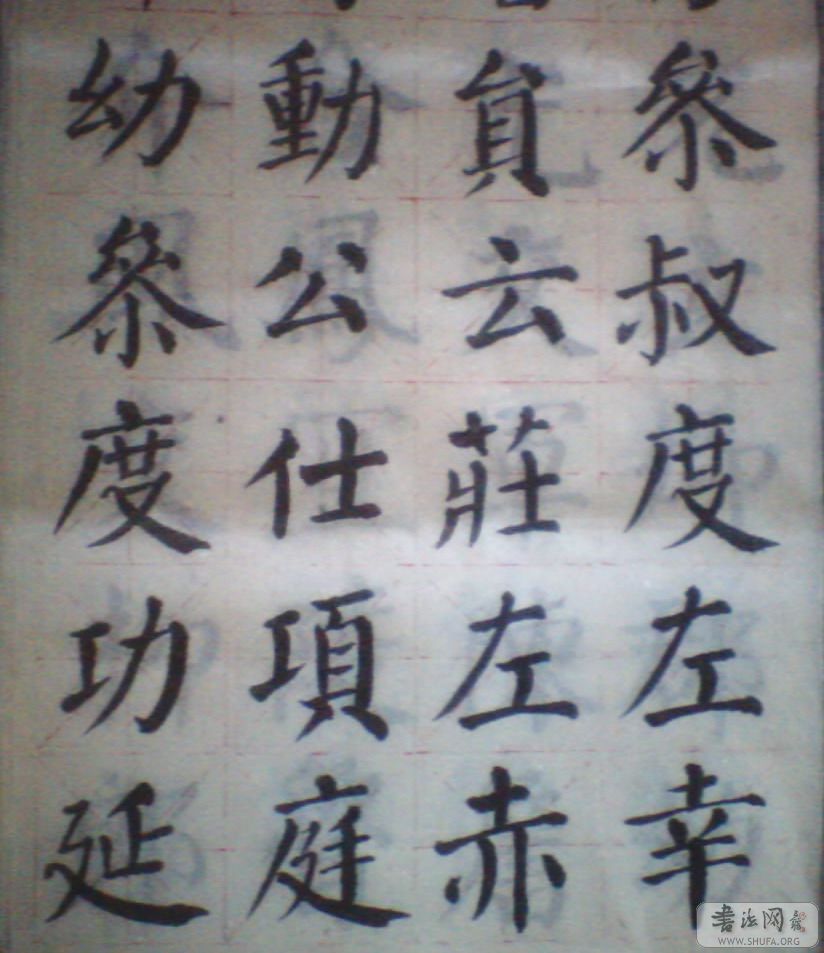 叅叔度左幸
貟云莊左赤
動公仕項庭
幼叅度功延
书法网
WWW.SHUFA.ORG